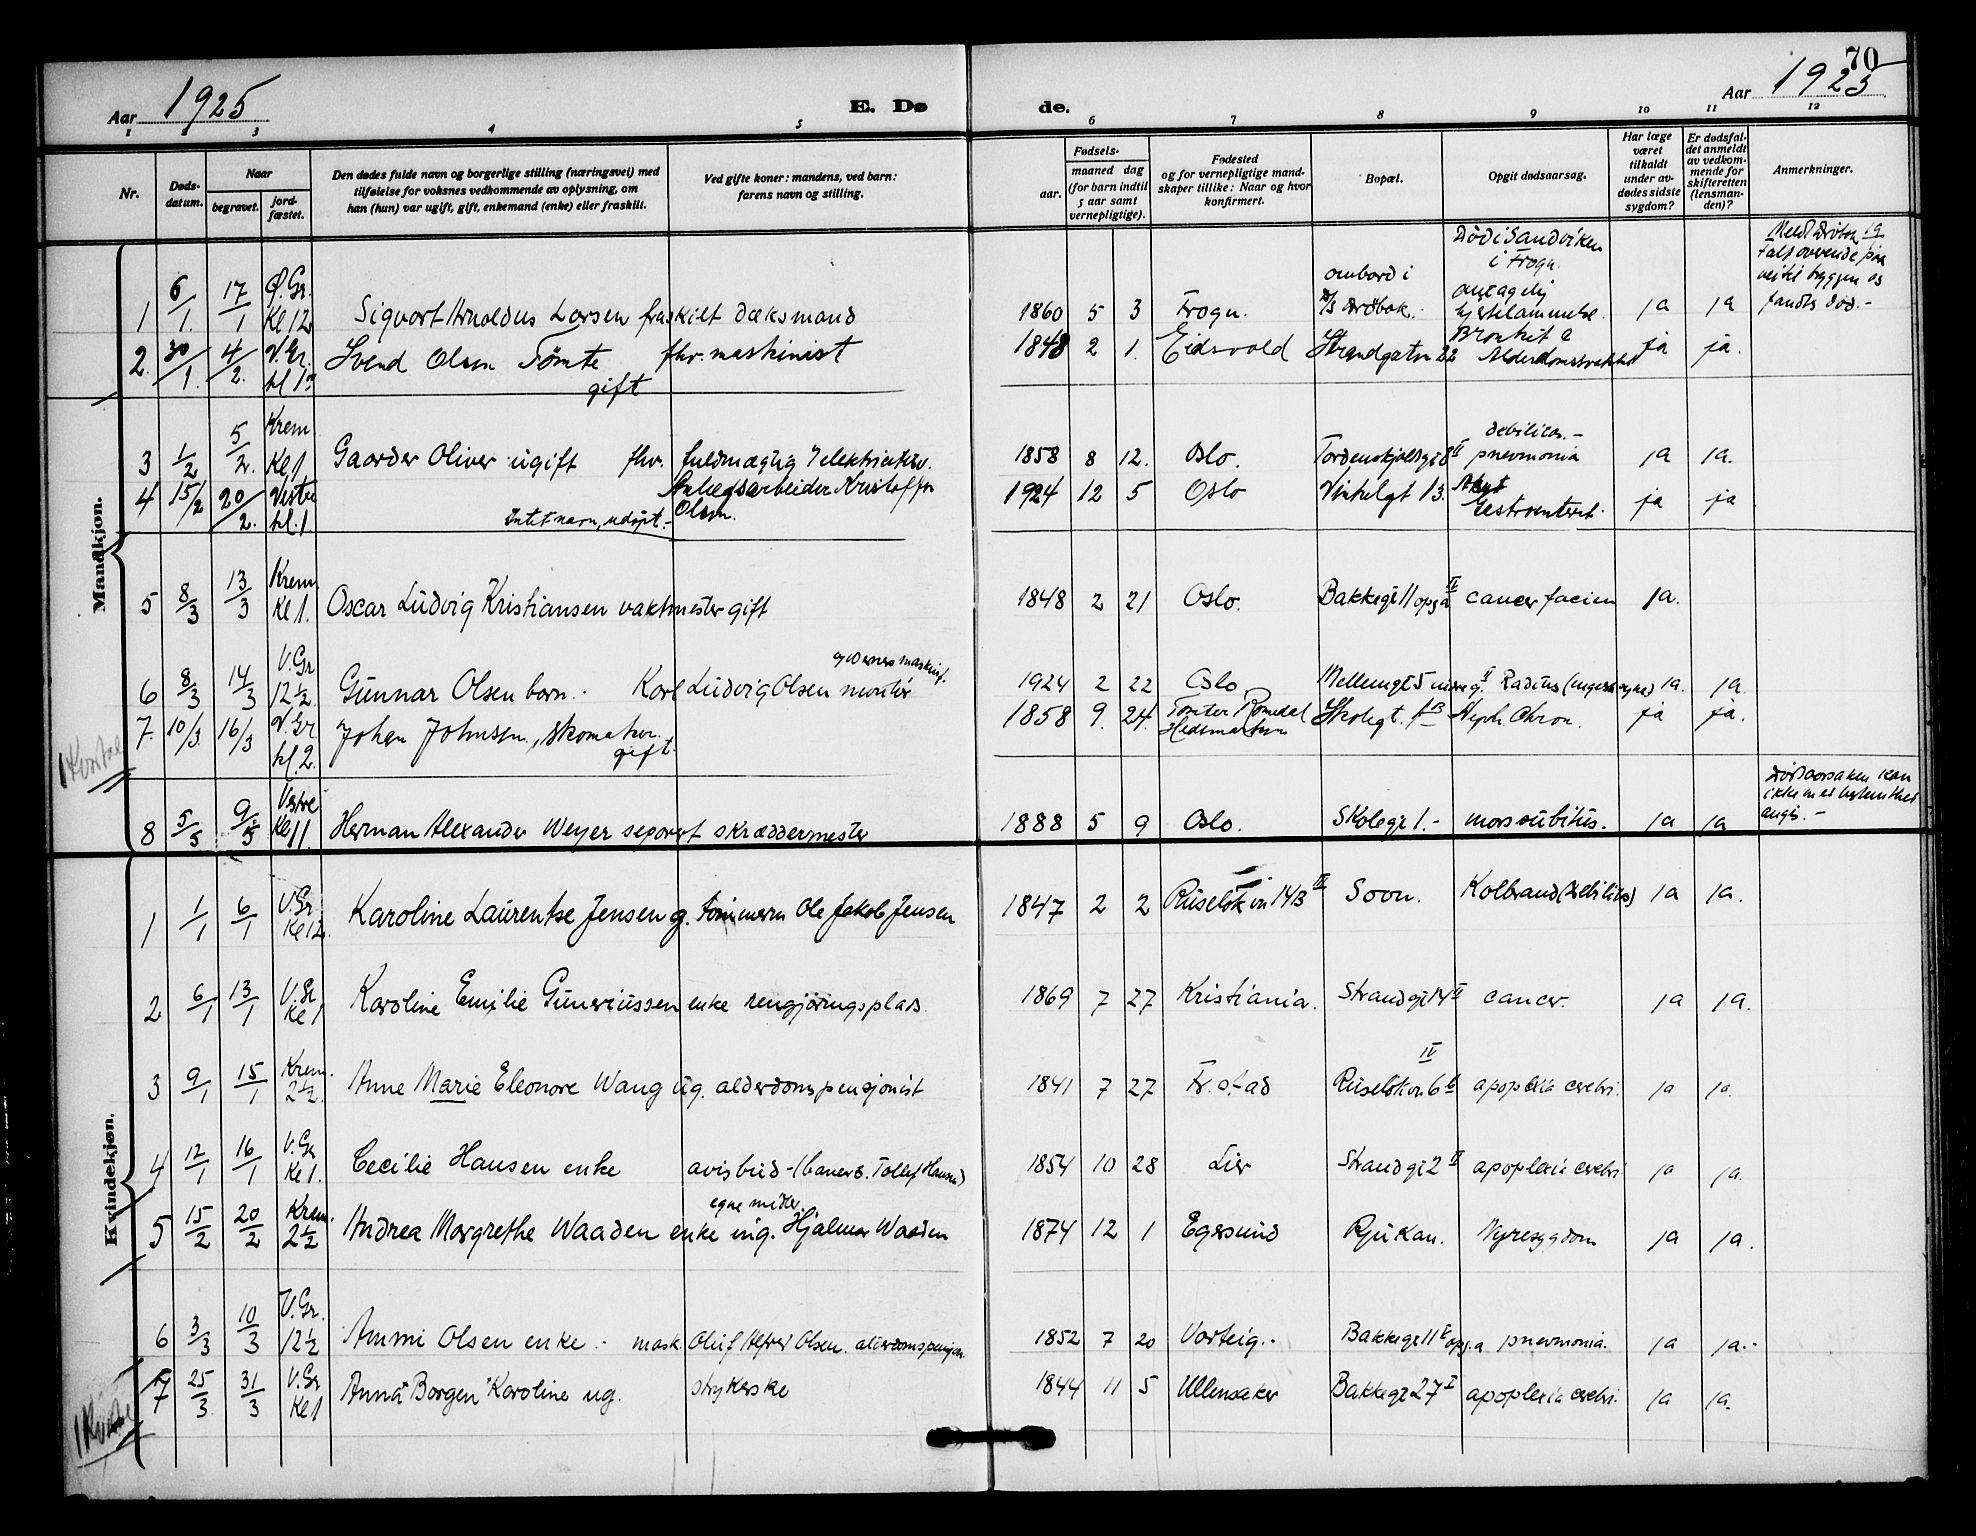 70
Aar 1925
E. Dø
de.
Aar 1925
1 2 3 4 5 6 7 8 9 10 11 12
Nr.
Døds-
datum.
Naar
begravet.
jord-
fæstet.
Den dødes fulde navn og borgerlige stilling (næringsvei) med
tilføielse for voksnes vedkommende av oplysning, om
han (hun) var ugift, gift, enkemand (enke) eller fraskilt.
Ved gifte koner: mandens, ved barn:
farens navn og stilling.
Fødsels-
aar. maaned dag
(for barn indtil
5 aar samt
vernepligtige).
Fødested
og for vernepligtige mand-
skaper tillike: Naar og hvor
konfirmert.
Bopæl.
Opgit dødsaarsag.
Har læge
været
tilkaldt
under av-
dødes sidste
sygdom?
Er dødsfal-
det anmeldt
av vedkom-
mende for
skifteretten
(lensman-
den)?
Anmerkninger.
Mandkjøn.
1 6/1. 17/1 Ø.Gr. Kl 12 Sigvart Arnoldus Larsen fraskilt dæksmand 1860 5 3 Frogn. ombord i D/S Drøbak. Død i Sandviken i Frogn. antagelig hjertelammelse. ja ja
falt overende paa
vei til bryggen og
fandts død.-
2. 30/1. 4/2. V.Gr. kl 1 Svend Olsen Tømte gift fhv. maskinist 1848 2 1. Eidsvold Strandgaten 22 Bronkit & Alderdomssvakhet ja ja.
3 1/2 5/2. Krem Kl 1 Gaarder Oliver ugift fhv. fuldmægtig 1858 8 12. Oslo. Tordenskjoldsgt 8 II debilitas.- pneumonia ja ja.
4 15/2 20/2. Vestre kl. 1. Intet navn, udøpt.- Anlegsarbeider Kristoffer Olsen. 1924 12 5 Oslo Vinkelgt 13. Akut Gastroenterit. ja ja
5 8/3 13/3 Krem. Kl 1. Oscar Ludvig Kristiansen vaktmester gift 1848 2 21 Oslo. Bakkegt 11 opg a IV cancer faciei ja.
6 8/3 14/3 V.Gr 12 1/2 Gunnar Olsen barn.. Karl Ludvig Olsen montør 1924 2 22 Oslo Mellemgt 5 II ja. ja.
7. 10/3 16/3 V.Gr kl. 2. Johan Johnsen, skomaker. gift. 1858 9. 24. Tomter Romedal Hedemarken Skolegt. Neph. Chron. ja ja.
8 5/5 9/5 Vestre Kl 11. Herman Alexander Weyer separert skræddermester 1888 5 9 Oslo. Skolegt 1.- mors subitus. ja ja
Dødsaarsaken kan
ikke med bestemthet
angis.-
Kvindekjøn.
1 1/1 6/1 V.Gr Kl 12. Karoline Laurentse Jensen g. tømmerm Ole Jakob Jensen 1847 2 2 Ruseløkvn 14B IV Soon. Kolbrand (Debilitas) ja ja.
2 6/1 13/1 V.Gr Kl 1 Karoline Emilie Guneriussen enke rengjøringsplads. 1869 7 27 Kristiania. Strandgt 14 II cancer. ja ja.
3 9/1 15/1 Krem. 2 1/2. Anne Marie Eleonore Wang ug. alderdomspensjonist 1841 7 27 Fr.stad IV Ruseløkvn 6 b apoplexia cerebri. ja ja.
4 12/1 16/1 V.Gr Kl 1. Cecilie Hansen enke avisbud- 1854 10 28 Lier Strandgt 2 II apoplexia cerebri ja ja.
5 15/2 20/2 Krem. 2 1/2 Andrea Margrethe Waaden enke egne midler. ing. Hjalmar Waaden 1874 12 1 Egersund Rjukan. Nyresygdom ja ja.
6 3/3 10/3 V.Gr. 12 1/2 Ammi Olsen enke. mask. Oluf Alfred Olsen. alderdomspensjon. 1852 7 20 Varteig.. Bakkegt 11 V opg. a pneumonia. ja ja.-
7 25/3 31/3 V.Gr Kl 1 Anna "Borgen" Karoline ug. strykerske 1844 11 5 Ullensaker Bakkegt 27 I apoplexia cerebri. ja ja.